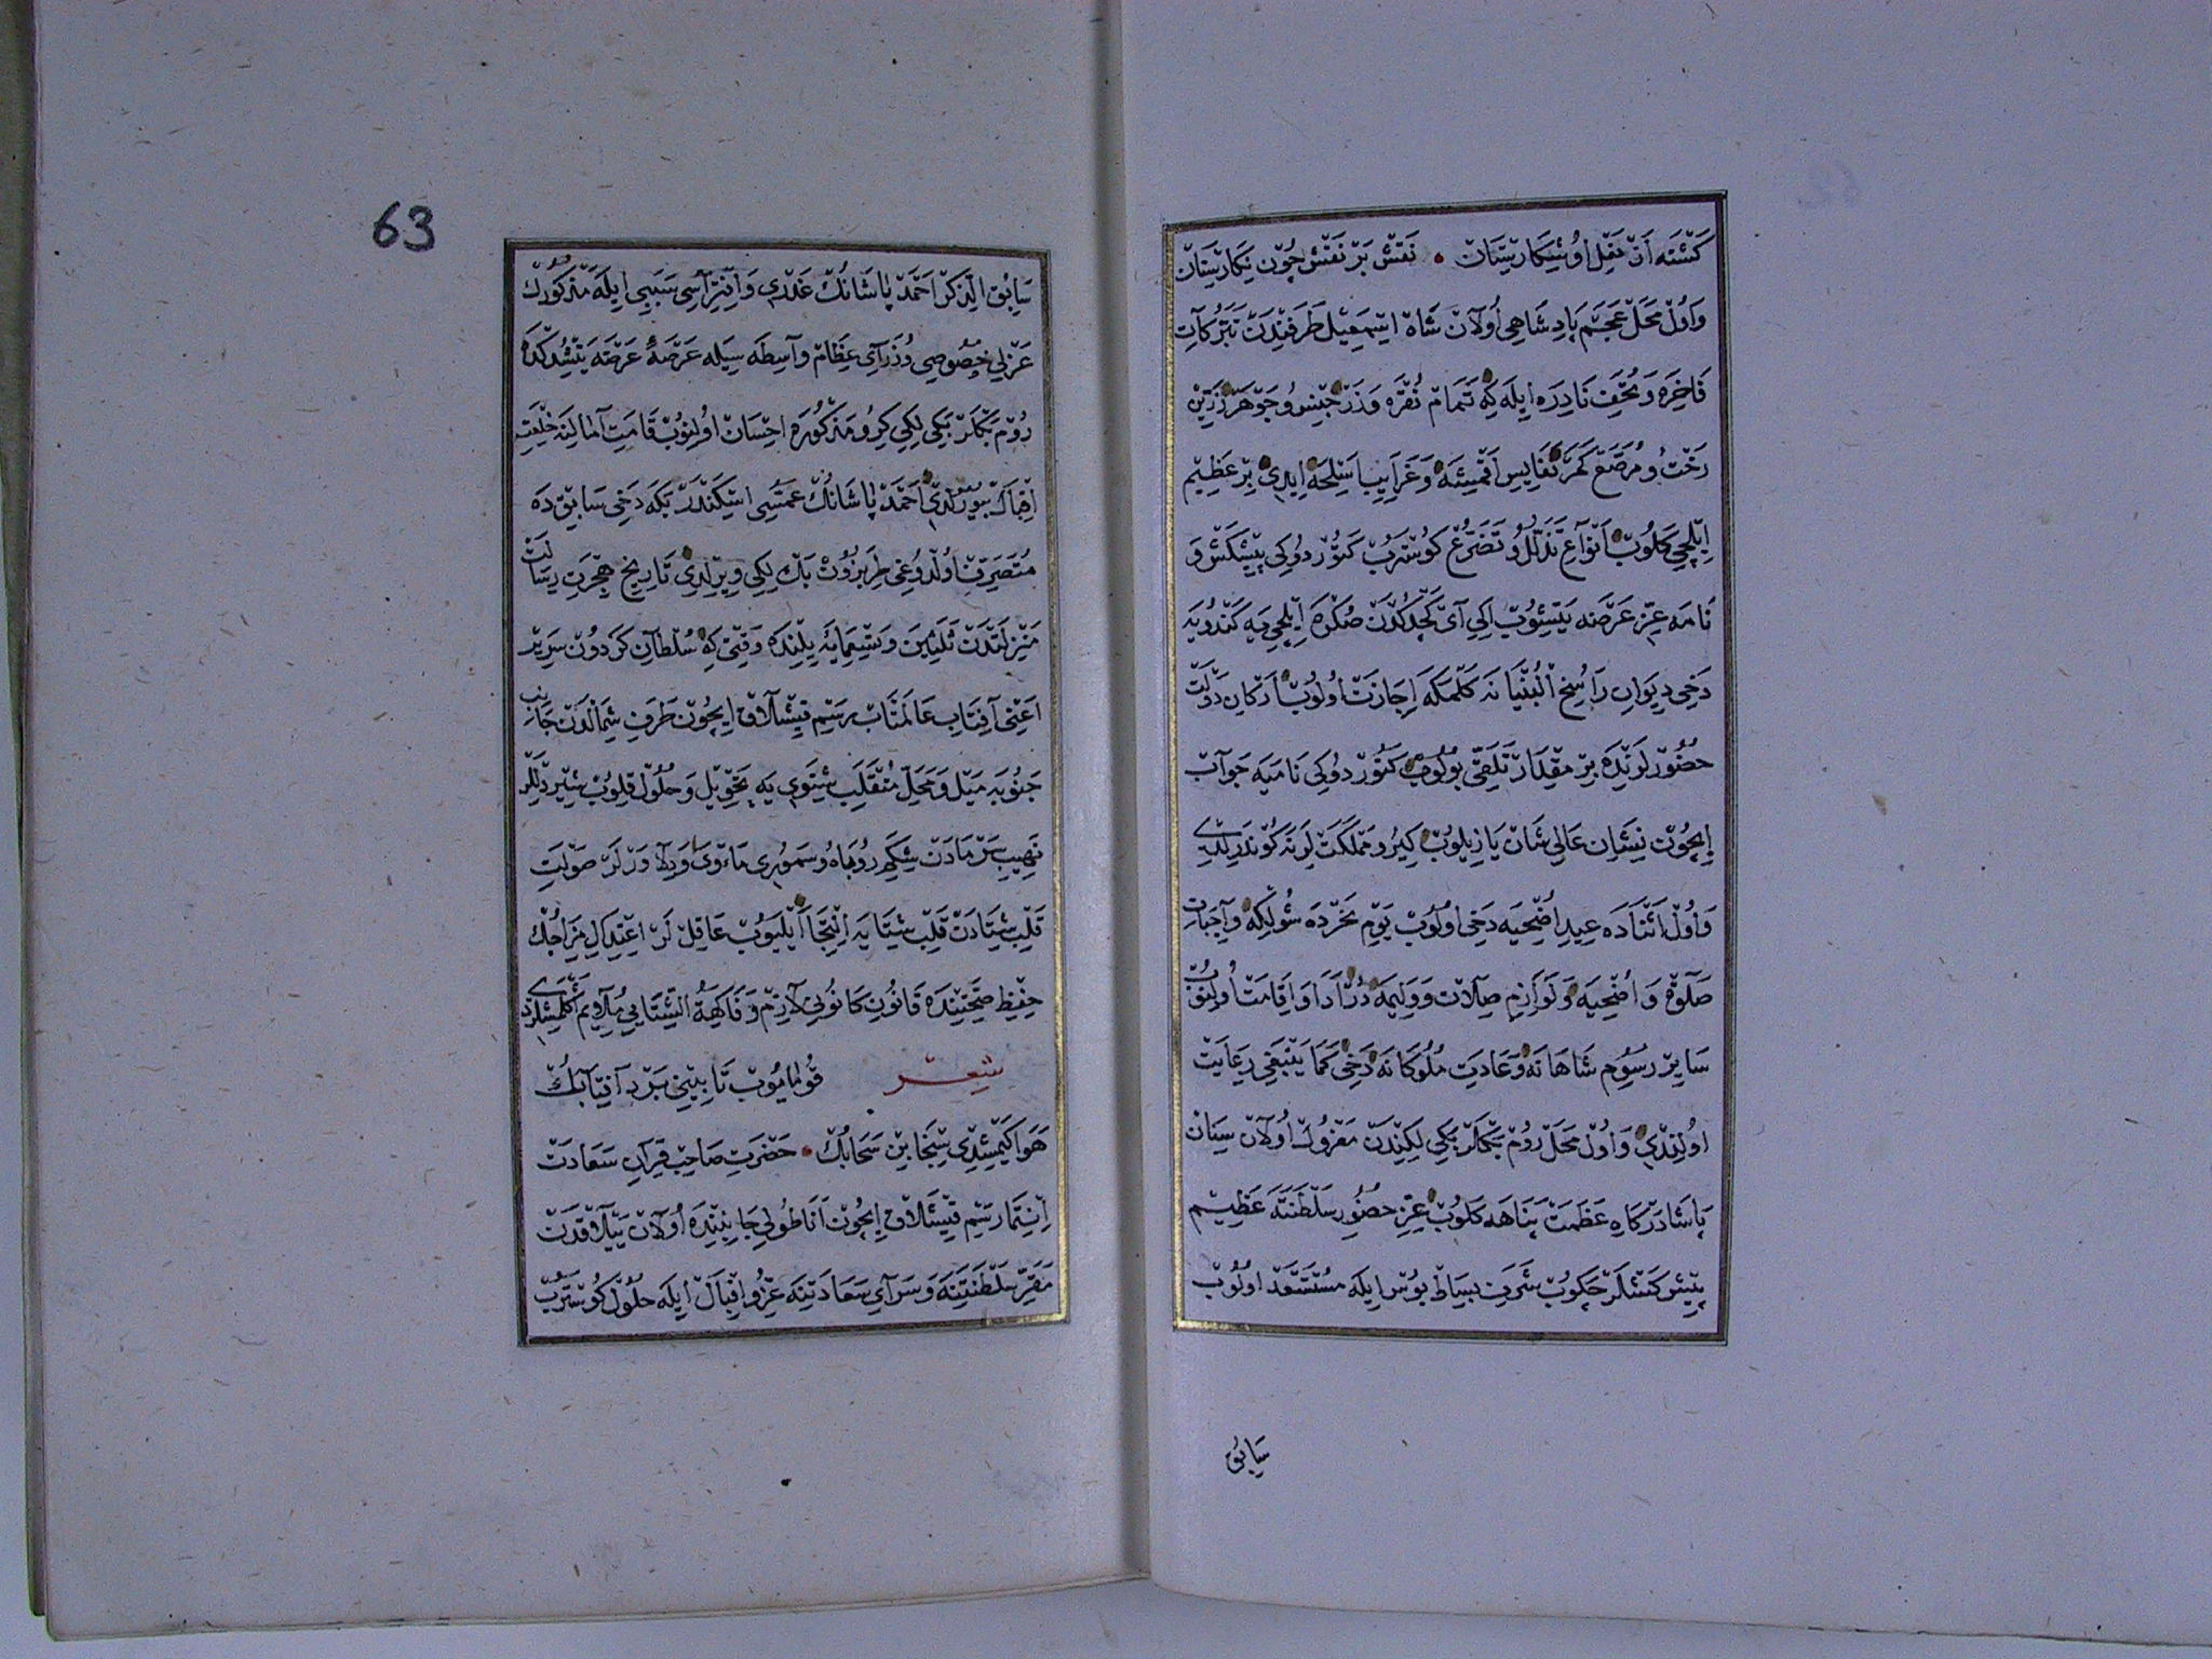 كَشْتَه اَزْ نَعْلِ اُو شِكَارِسْتَانْ • نَقْشْ بَرْ نَقْشْ چُونْ نِكَارِسْتَانْ
وَاُولْ مَحَلْ عَجَمْ پَادِشَاهِى اُولَانْ شَاهْ اِسْمَعِيلْ طَرَفِنْدَنْ تَبَرُّكَاتِ
فَاخِرَه وَتُحَفِ نَادِرَه اِيلَه كِه تَمَامْ نُقْرَه وَزَرْ جِنْسْ وُ جَوْهَرْ زَرِّينْ
رَخْتْ وُ مُرَصَّعْ كَمَرْ نَفَايِسِ اَقْمِشَه وَغَرَايِبِ اَسْلِحَه اِيدِى بِرْ عَظِيمْ
اِيلْچِى كَلُوبْ اَنْوَاعِ تَذَلُّلْ وُ تَضَرُّعْ كُوسْتَرُبْ كَتُورْدُوكِى پِيشْكَشْ وَ
نَامَه عِزِّ عَرْضَه يَتِشُوبْ اِكِى آىْ كَچْدُكْدَنْ صُكْرَه اِيلْچِى يَه كَنْدُويَه
دَخِى دِيوَانِ رَاسِخُ الْبُنْيَانَه كَلْمَكَه اِجَازَتْ اُولُوبْ اَرْكَانِ دَوْلَتْ
حُضُورْلَرِنْدَه بِرْ مِقْدَارْ تَلَقِّى بُولُوبْ كَتُورْدُوكِى نَامَيَه جَوَابْ
اِيچُونْ نِشَانِ عَالِى شَانْ يَازِيلُوبْ كِيرُو مَمْلَكَتْلَرِنَه كُونْدَرِلْدِى
وَاُولْ اَثْنَادَه عِيدِ اُضْحِيَه دَخِى اُولُوبْ يَوْمِ نَحْرْدَه شُولْكِه وَاجِبَاتِ
صَلٰوة وَ اُضْحِيَه وَلَوَازِمِ صِلَاتْ وَوَلِيمَه دُرْ اَدَا وَاِقَامَتْ اُولِنُوبْ
سَايِرْ رُسُومِ شَاهَانَه وَعَادَتِ مُلُوكَانَه دَخِى كَمَا يَنْبَغِى رِعَايَتْ
اُولِنْدِى وَاُولْ مَحَلْ رُومْ بَكْلَرْبَكِى لِكِنْدَنْ مَعْزُولْ اُولَانْ سِنَانْ
پَاشَا دَرْكَاهِ عَظَمَتْ پَنَاهَه كَلُوبْ عِزِّ حُضُورِ سَلْطَنَتَه عَظِيمْ
پِيشْكَشْلَرْ چَكُوبْ شَرَفِ بِسَاطْ بُوسْ اِيلَه مُسْتَسْعَدْ اُولُوبْ
سَابِقْ
63
سَابِقُ الذِّكْرْ اَحْمَدْ پَاشَانُكْ غَدْرِى وَاِفْتِرَاسِى سَبَبِى اِيلَه مَذْكُورُكْ
عَزْلِى خُصُوصِى وُزَرَاىِ عِظَامْ وَاسِطَه سِيلَه عَرْصَۀ عَرْضَه يَتِشْدُكْدَه
رُومْ بَكْلَرْبَكِى لِكِى كِرُو مَذْكُورَه اِحْسَانْ اُولِنُوبْ قَامَتِ آمَالِنَه خِلْعَتِ
اِقْبَالْ بُيُورُلْدِى اَحْمَدْ پَاشَانُكْ عَمُّسِى اِسْكَنْدَرْ بَكَه دَخِى سَابِقْدَه
مُتَصَرِّفْ اُولْدُوغِى طَرَبَزُونْ بَكْ لِكِى وِيرِلْدِى تَارِيخِ هِجْرَتِ رِسَالَتْ
مَنْزِلَتْدَنْ ثَلٰثِينَ وَتِسْعِمِايَه يِلِنْدَه وَقْتِى كِه سُلْطَانِ كَرْدُونْ سَرِيرْ
اَعْنِى آفِتَابِ عَالَمْتَابْ رَسْمِ قِيشْلَاقْ اِيچُونْ طَرَفِ شِمَالْدَنْ جَانِبِ
جَنُوبَه مَيْلْ وَمَحَلِّ مُنْقَلَبِ شِتَوِى يَه تَحْوِيلْ وَحُلُولْ قِلُوبْ شِيرْدِلْلَرْ
نَهِيبِ سَرْمَادَنْ شِكَمِ رُوبَاه وُ سَمُورِى مَأْوٰى وَدِلَاوَرْلَرْ صَوْلَتِ
قَلْبِ شِتَادَنْ قَلْبِ شِتَايَه اِلْتِجَا اَيْلَيُوبْ عَاقِلْ لَرْ اِعْتِدَالِ مِزَاجُكْ
حِفْظِ صِحَّتِنْدَه قَانُونِ كَانُونِى لَازِمْ وَفَاكِهَةُ الشِّتَايِى مُلَايِمْ اَكْلَمِشْلَرْدِى
شعر قُولْمَايُوبْ تَابِينِى بَرْدْ آفِتَابُكْ
هَوَا كَيْمِشْدِى سِنْجَابِينْ سَحَابُكْ • حَضْرَتِ صَاحِبْ قِرَانِ سَعَادَتْ
اِنْتِمَا رَسْمِ قِيشْلَاقْ اِيچُونْ اَنَاطُولِى جَانِبِنْدَه اُولَانْ يَيْلَاقْدَنْ
مَقَرِّ سَلْطَنَتِنَه وَسَرَاىِ سَعَادَتِنَه عِزُّ وُ اِقْبَالْ اِيلَه حُلُولْ كُوسْتَرُبْ